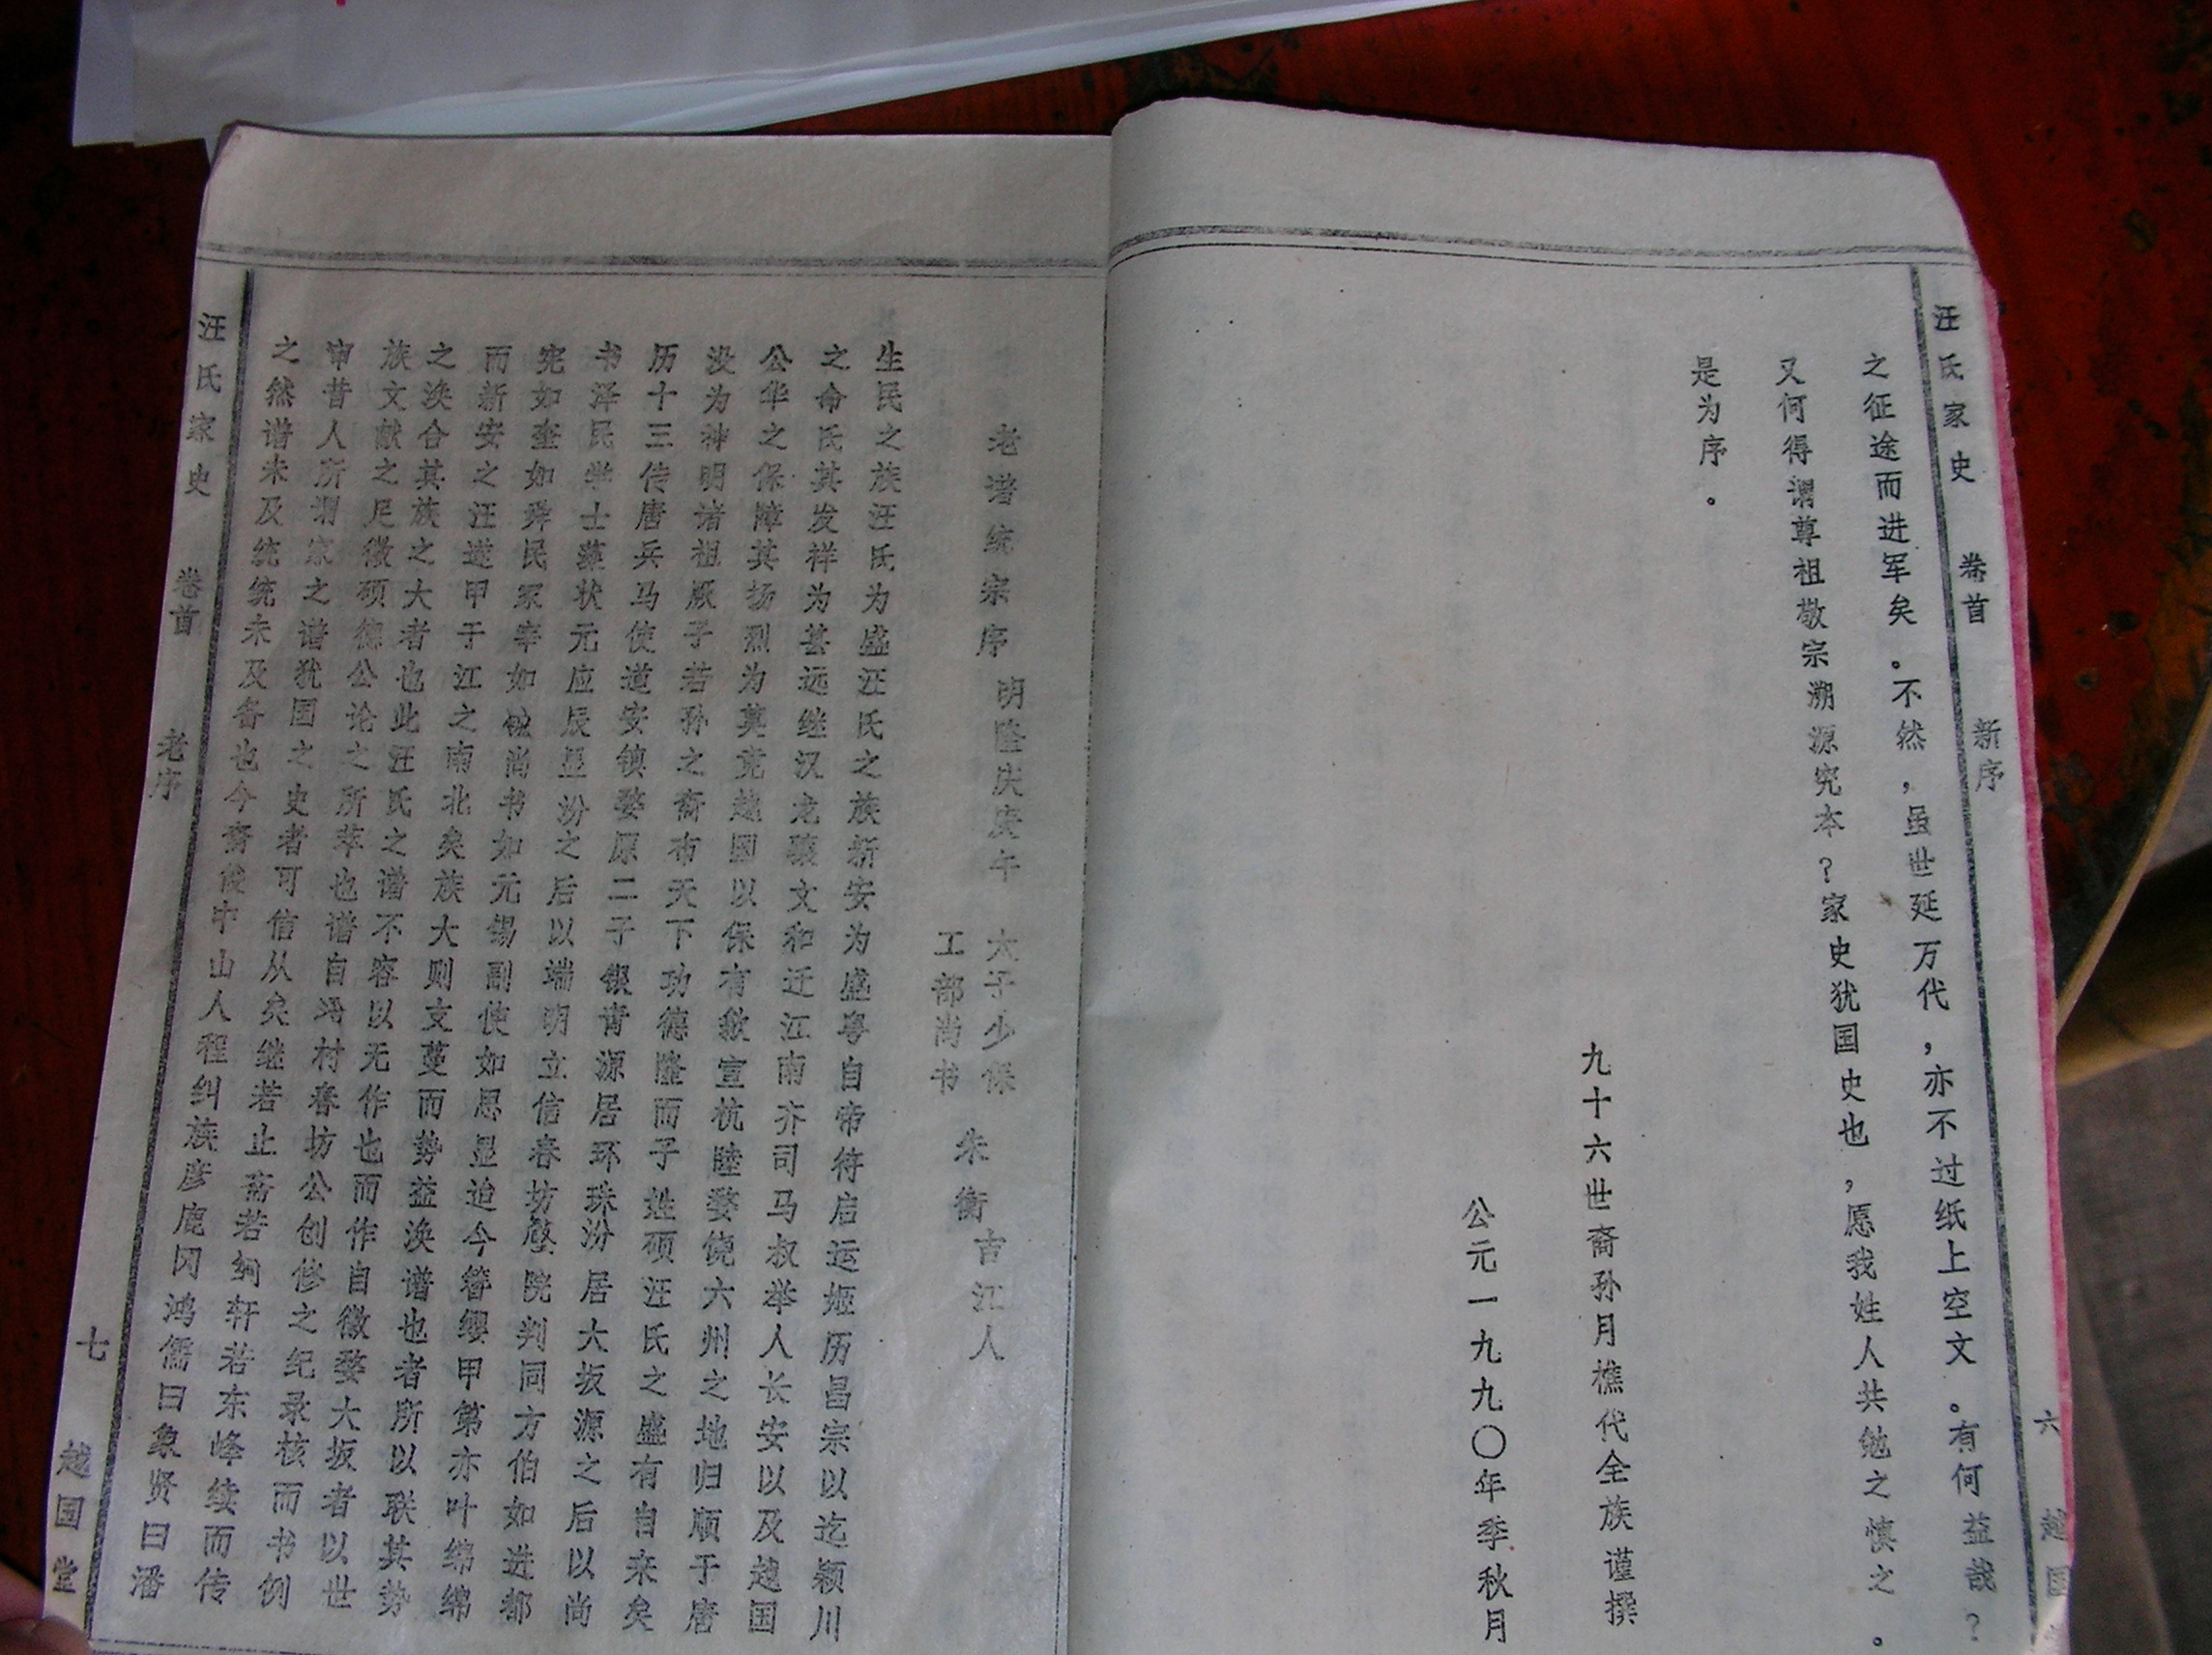 汪氏家史 卷首 新序 六 越国
之征途而进军矣。不然，虽世延万代，亦不过纸上空文。有何益哉？
又何得谓尊祖敬宗溯源究本？家史犹国史也，愿我姓人共勉之慎之。
是为序。
九十六世裔孙月樵代全族谨撰
公元一九九〇年季秋月
老谱统宗序 明隆庆庚午 太子少保 工部尚书 朱衡 古江人
生民之族汪氏为盛汪氏之族新安为盛粤自帝符启运姬历昌宗以迄颍川
之命氏其发祥为甚远继汉龙骧文和迁江南齐司马叔举人长安以及越国
公华之保障其扬烈为莫竞越国以保有歙宣杭睦婺饶六州之地归顺于唐
没为神明诸祖厥子若孙之裔布天下功德隆而子姓硕汪氏之盛有自来矣
历十三传唐兵马使道安镇婺原二子银青源居环珠汾居大坂源之后以尚
书泽民学士藻状元应辰显汾之后以端明立信春坊啟院判同方伯如进都
宪如奎如舜民冢宰如鋐尚书如元锡副使如思显迨今簪缨甲第亦叶绵绵
而新安之汪遂甲于江之南北矣族大则支蔓而势益涣谱也者所以联其势
之涣合其族之大者也此汪氏之谱不容以无作也而作自徽婺大坂者以世
族文献之足徵硕德公论之所萃也谱自浯村春坊公创修之纪录核而书例
审昔人所谓家之谱犹国之史者可信从矣继若止斋若绚轩若东峰续而传
之然谱未及统统未及备也今裔俊中山人程纠族彦鹿冈鸿儒曰象贤曰潘
汪氏家史 卷首 老序 七 越国堂